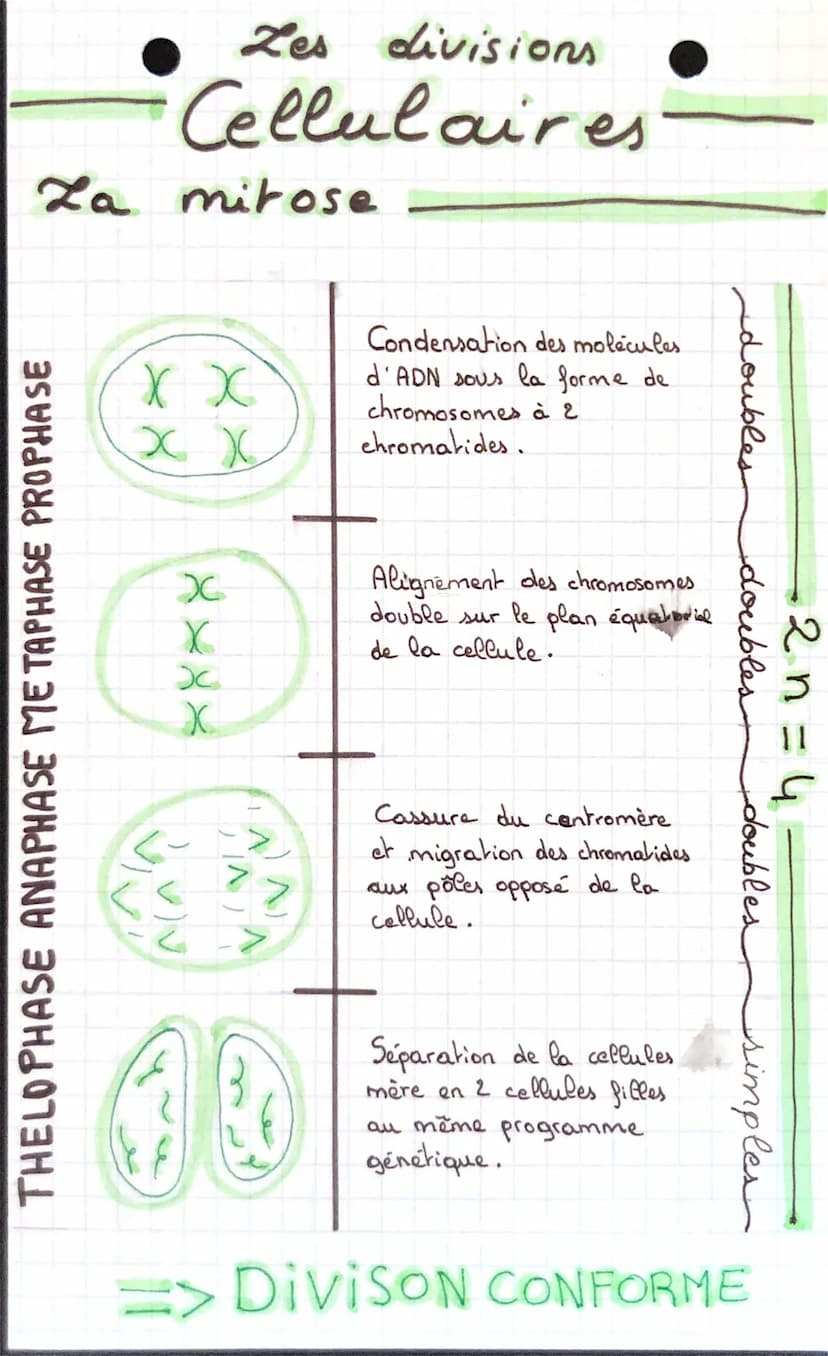 Les divisions
Cellulaires
La mitose
THELOPHASE ANAPHASE METAPHASE PROPHASE
Condensation des molécules
d'ADN sous la forme de
chromosomes à 2
chromatides.
Alignement des chromosomes
double sur le plan
de la cellule.
Cassure du centromère
et migration des chromatides
aux pôles opposé de la
cellule.
Séparation de la cellules
mère en 2 cellules filles
au même programme
génétique.
doubles doubles doubles simples
2n = 4
=> DiViSON CONFORME